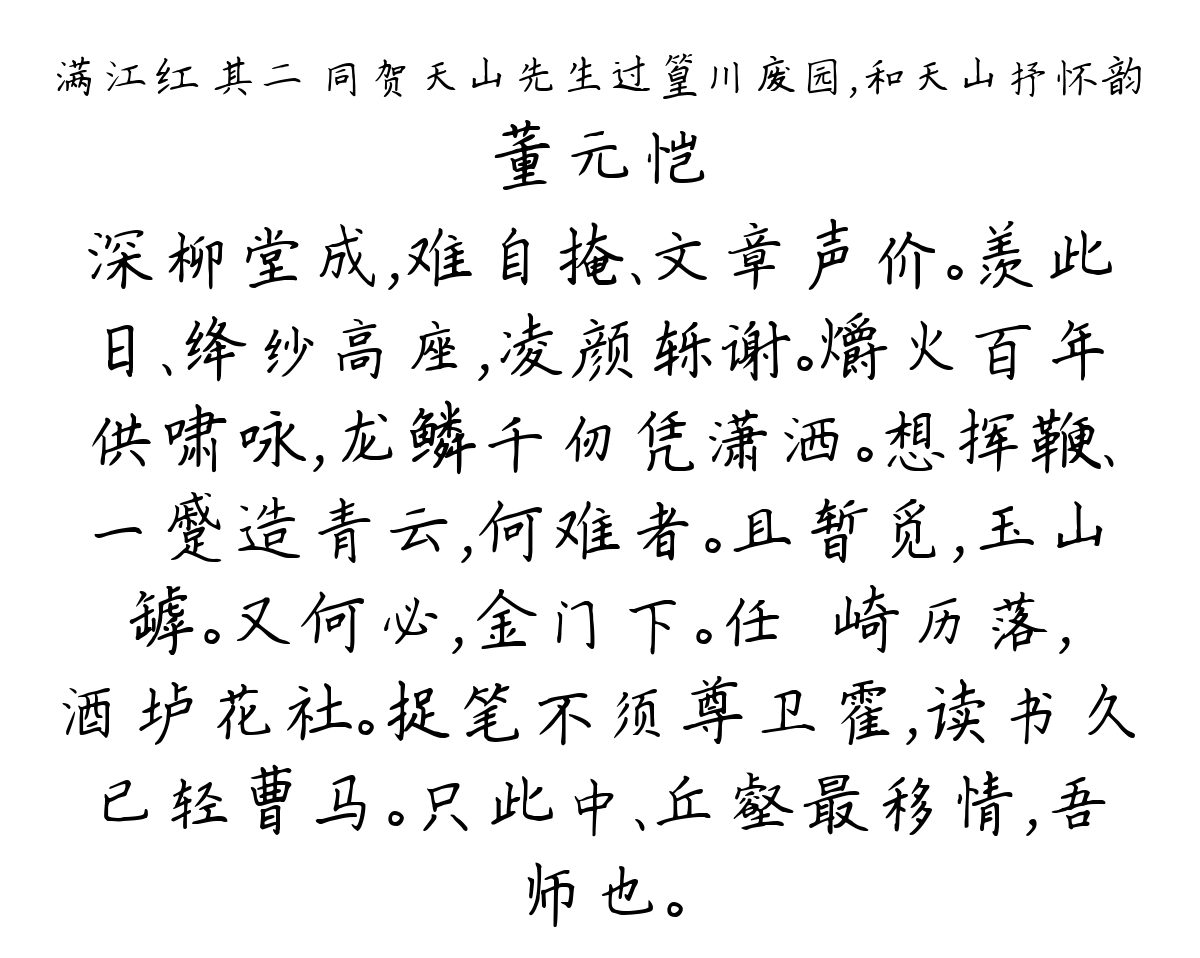 满江红 其二 同贺天山先生过篁川废园,和天山抒怀韵
董元恺
深柳堂成,难自掩、文章声价。羡此
日、绛纱高座,凌颜轹谢。爝火百年
供啸咏,龙鳞千仞凭潇洒。想挥鞭、
一蹙造青云,何难者。且暂觅,玉山
罅。又何必,金门下。任 崎历落,
酒垆花社。捉笔不须尊卫霍,读书久
已轻曹马。只此中、丘壑最移情,吾
师也。